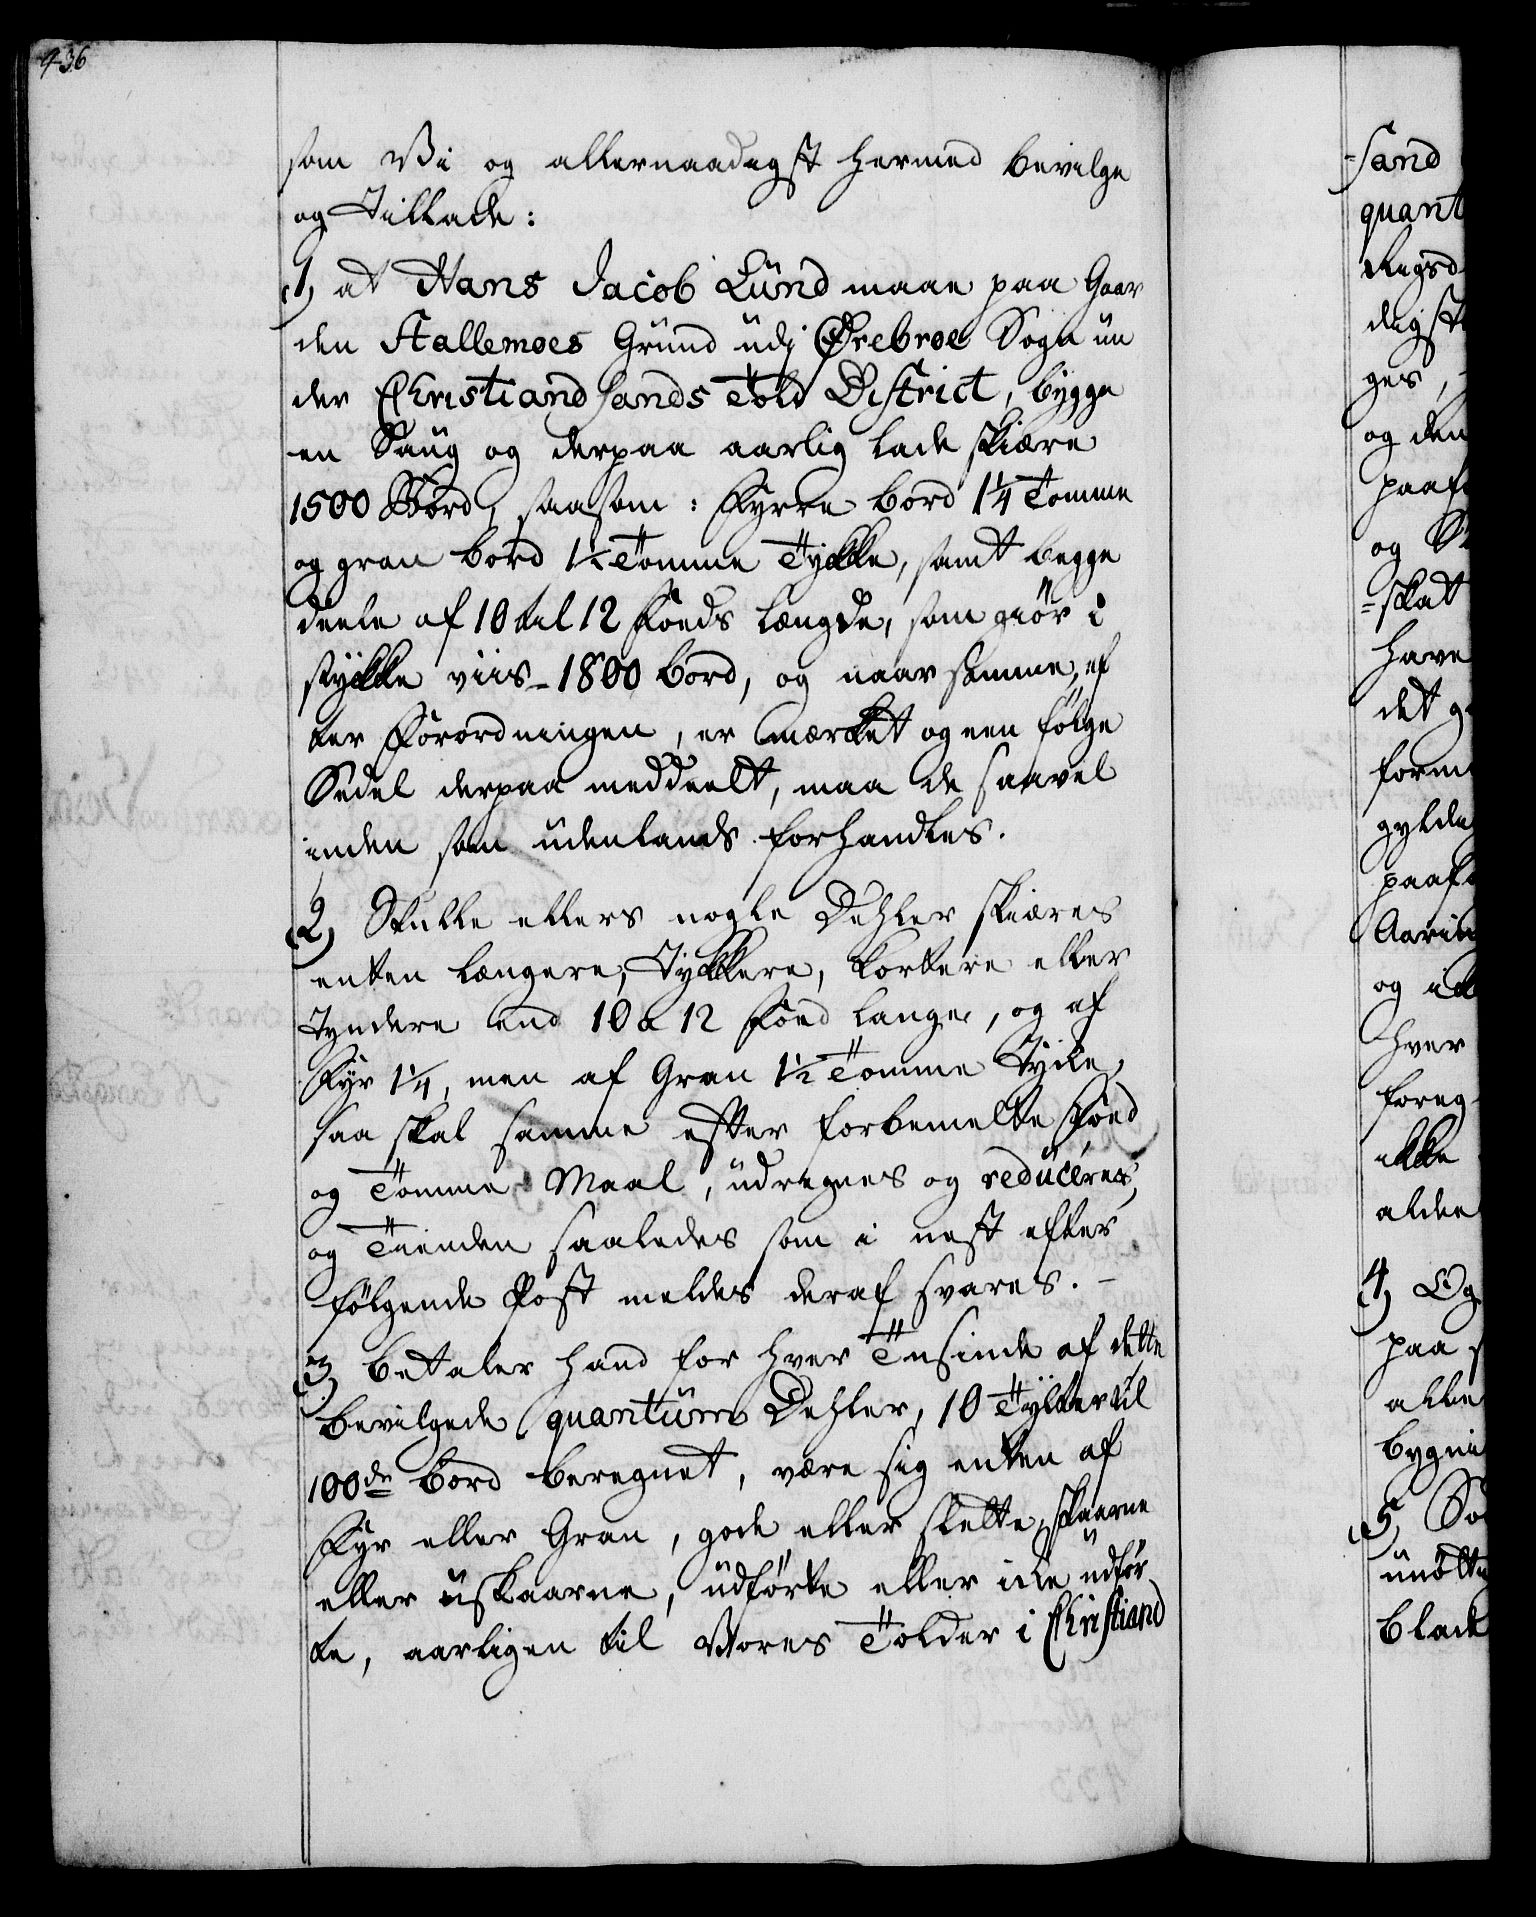 436
som Vi og allernaadigst hermed bevilge
og Tillade:
1, at Hans Jacob Lund maae paa Gaar
den Stallemoes Grund udj Ørebroe Sogn un
der Christiandsands Told District, bygge
en Saug og derpaa aarlig lade skiære
1500 Bord, saasom: Fyrre bord 1¼ Tomme
og gran bord 1½ Tomme Tykke, samt begge
deele af 10 til 12 Foeds Længde, som giør i
stykke viis - 1800 bord, og naar samme, ef
ter Forordningen, er mærket og een følge
Sedel derpaa meddeelt, maa de saavel
inden som udenlands forhandles.
2, Skulle ellers nogle Dehler skiæres
enten længere, Tykkere, kortere eller
Tyndere end 10 a 12 Foed lange, og af
Fyr 1¼, men af Gran 1½ Tomme Tykke,
saa skal samme efter forbemelte Foed
og Tomme Maal, udregnes og reduceres,
og Tienden saaledes som i nest efter
følgende Post meldes deraf svares. -
3, betaler hand for hver Tusinde af dette
bevilgede quantum Dehler, 10 Tylter til
100de bord beregnet, være sig enten af
Fyr eller Gran, gode eller slette, skaarne
eller uskaarne, udførte eller icke udfør
te, aarligen til Vores Tolder i Christiand
=sand
quant
Rigsd
digst
ges,
og den
paaf
og
=skat
have
det g
form
gylde
paaf
Aarin
og i
hver
foreg
ikke
alde
4, Og
paa
alle
bygni
5, So
unøtt
blade